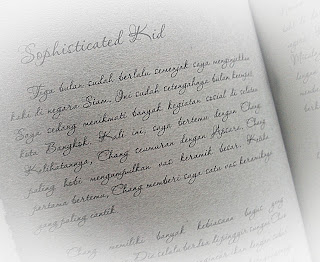 Sophisticated Kid
Tiga bulan sudah berlalu semenjak saya menginjakkan
kaki di negara Siam. Ini sudah setengahnya bulan keempat.
Saya sedang menikmati banyak kegiatan sosial di selatan
kota Bangkok. Kali ini, saya bertemu dengan Chang.
Kelihatannya, Chang seumuran dengan Apsara. Chang
paling hobi mengumpulkan vas keramik besar. Ketika
pertama bertemu, Chang memberi saya satu vas keramiknya
yang paling cantik.
Chang memiliki banyak kebiasaan bagus yang
Dia selalu berlari dipinggir sungai Chao